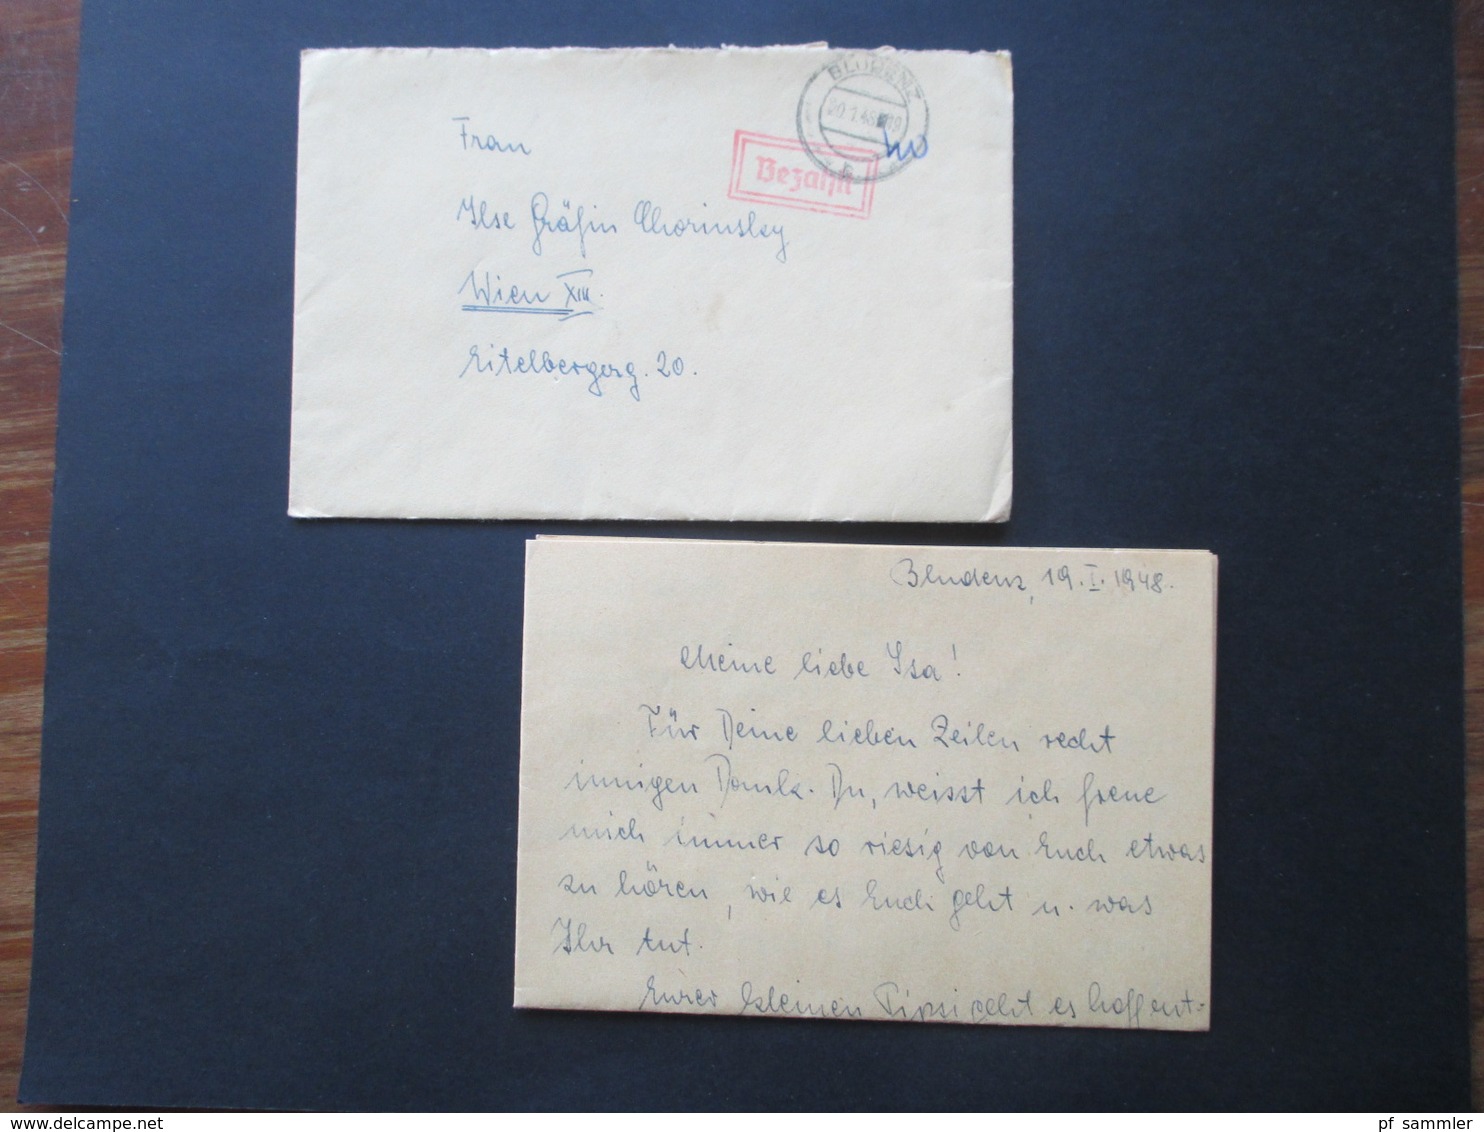 BLUDENZ
20.1.48
Bezahlt
Frau
Ilse Gräfin Chorinsky
Wien XIII.
Eitelbergerg. 20.
Bludenz, 19.I.1948.
Meine liebe Isa!
Für Deine lieben Zeilen recht
innigen Dank. Du, weisst ich freue
mich immer so riesig von Euch etwas
zu hören, wie es Euch geht u. was
Ihr tut.
Eurer kleinen Tipsi geht es hoffent-
pf_sammler